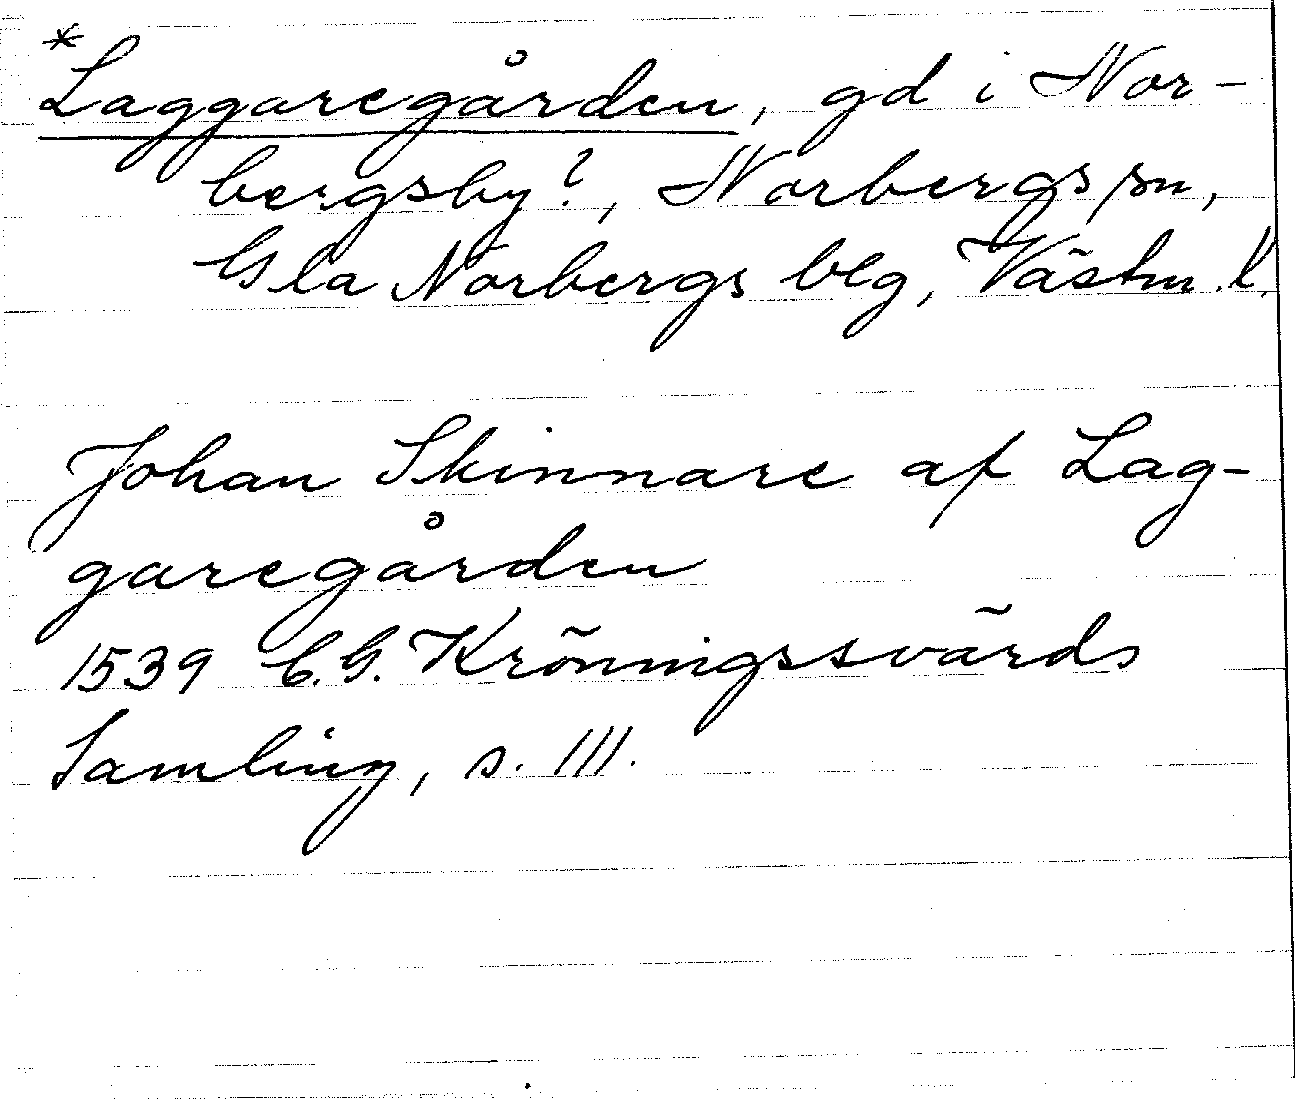 *
Laggaregården, gd i Nor-
bergsby?, Norbergs sn,
Gla Norbergs blg, Västm. l.
Johan Skinnare af Lag-
garegården
1539 C.G. Kröningssvärds
Samling, s. 111.